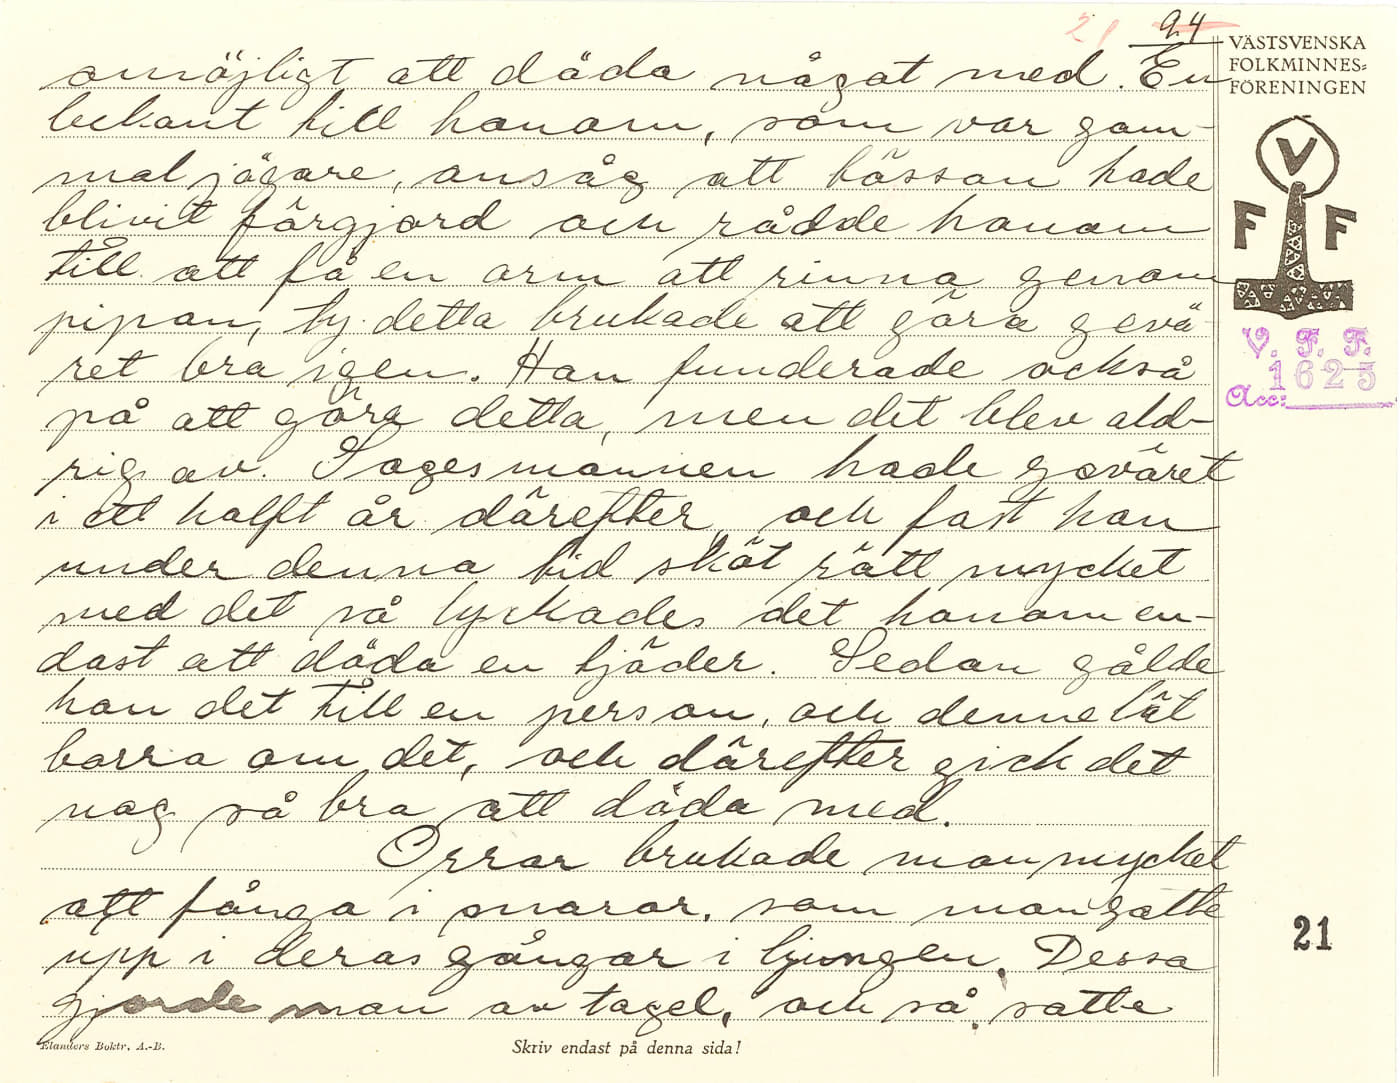 21 94
VÄSTSVENSKA
FOLKMINNES-
FÖRENINGEN
V
F F
V. F. F.
1625
Acc:
omöjligt att döda något med. En
bekant till honom, som var gam-
mal jägare, ansåg att bössan hade
blivit förgjord och rådde honom
till att få en orm att rinna genom
pipan, ty detta brukade att göra gevä-
ret bra igen. Han funderade också
på att göra detta, men det blev ald-
rig av. Sagesmannen hade geväret
i ett halft år därefter, och fast han
under denna tid sköt rätt mycket
med det så lyckades det honom en-
dast att döda en tjäder. Sedan sålde
han det till en person, och denne lät
borra om det, och därefter gick det
nog så bra att döda med.
Orrar brukade man mycket
att fånga i snaror, som man satte
upp i deras gångar i ljungen. Dessa
gjorde man av tagel, och så satte
21
Elanders Boktr. A.-B.
Skriv endast på denna sida!